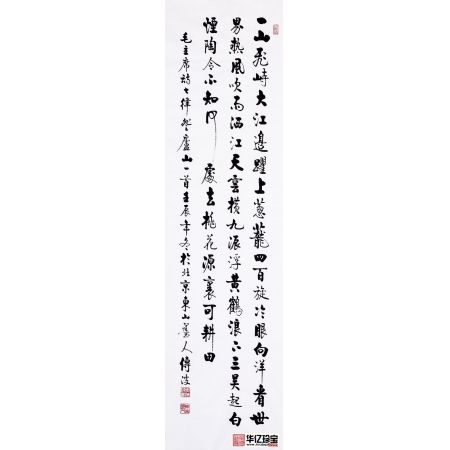 一山飛峙大江邊躍上蔥蘢四百旋冷眼向洋看世
界熱風吹雨洒江天雲橫九派浮黃鶴浪下三吳起白
煙陶令不知何處去桃花源裏可耕田
毛主席詩七律登廬山一首壬辰年冬於北京東山人傳波
华亿珍宝